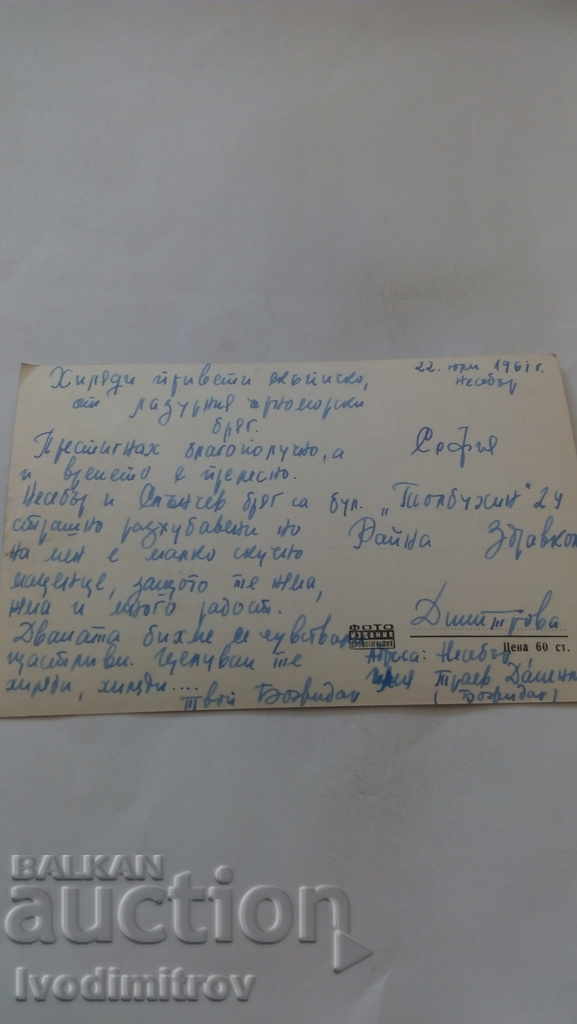 22. юли 1961 г.
Несебър
Хиляди привети скъпичко,
от лазурния черноморски
бряг.
Пристигнах благополучно, а
и времето е прелесно.
Несебър и Слънчев бряг са
страшно разхубавени но
на мен е малко скучно
миценце, защото те няма,
няма и много радост.
Двамата бихме се чувствали
щастливи. Целувам те
хиляди, хиляди....
твой Божидан
София
бул. „Толбухин" 24
Райна Здравков
Димитрова
ФОТО
ИЗДАНИЕ
Цена 60 ст.
Несебър
Траев
(Божидан)
BALKAN
auction
Ivodimitrov